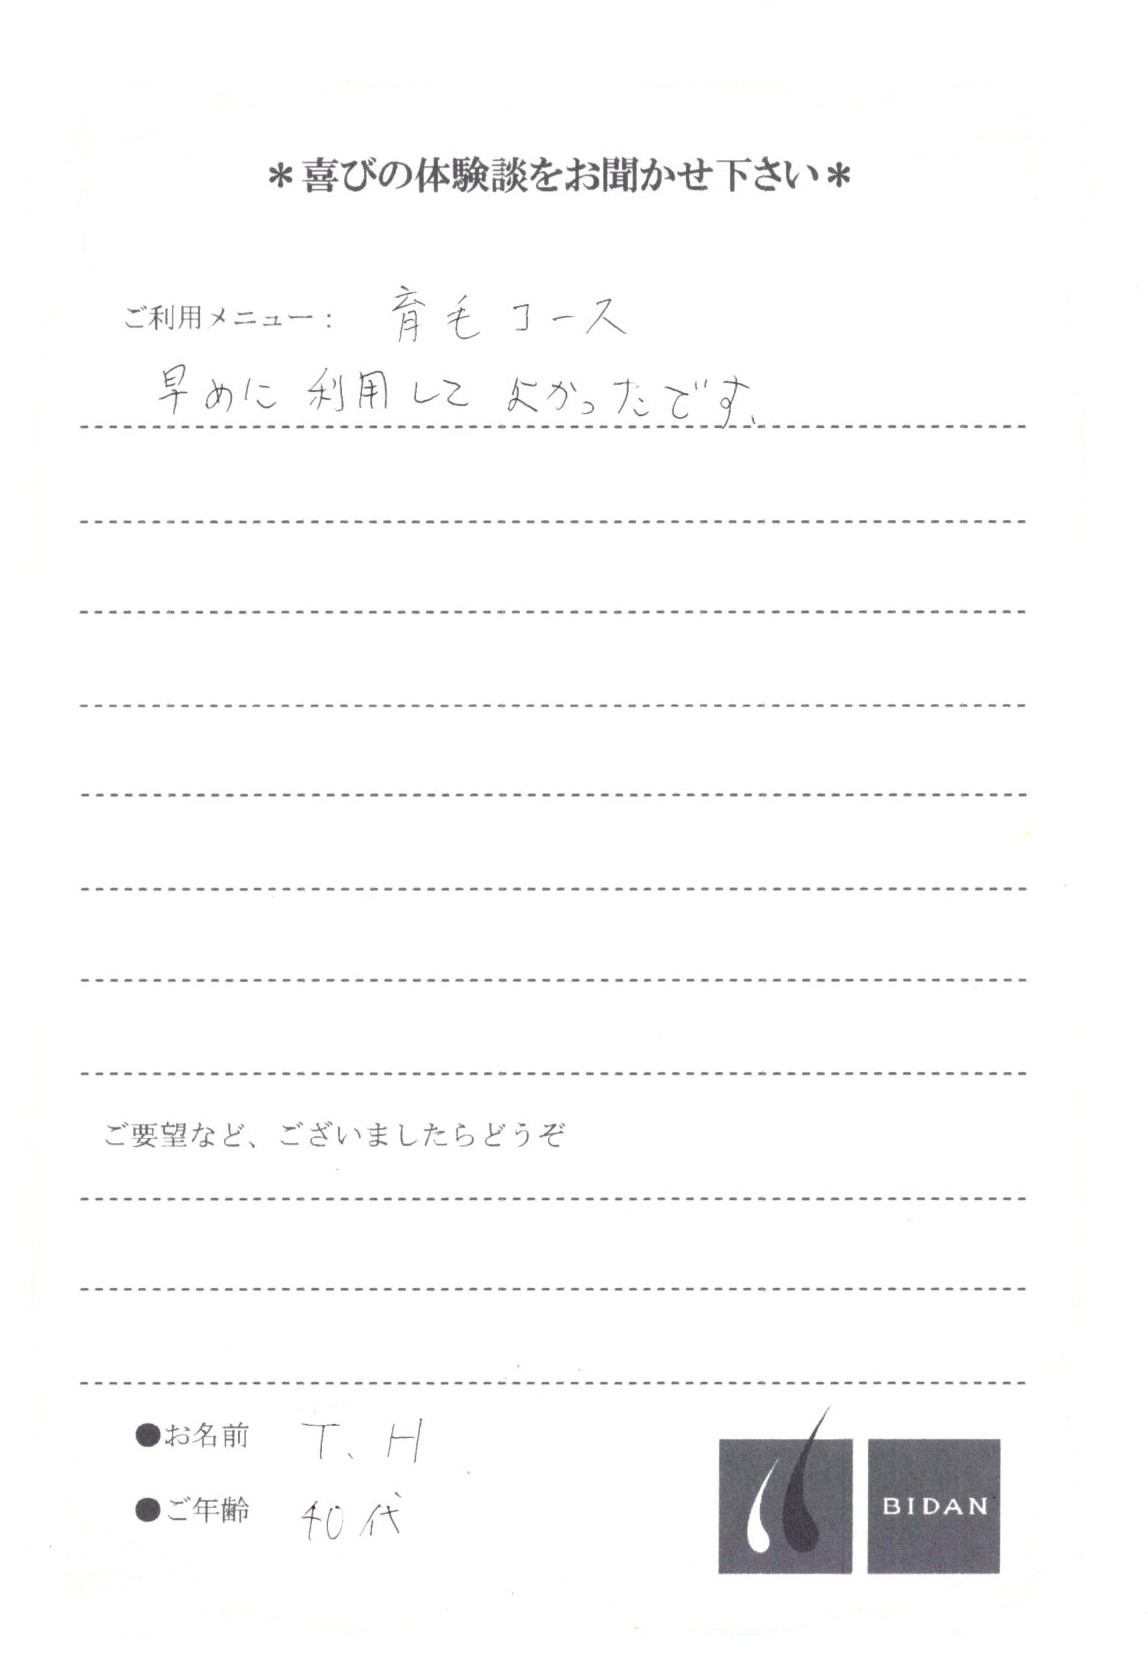 ＊喜びの体験談をお聞かせ下さい＊
ご利用メニュー： 育毛コース
早めに利用してよかったです、
ご要望など、ございましたらどうぞ
●お名前 T、H
●ご年齢 40代
BIDAN